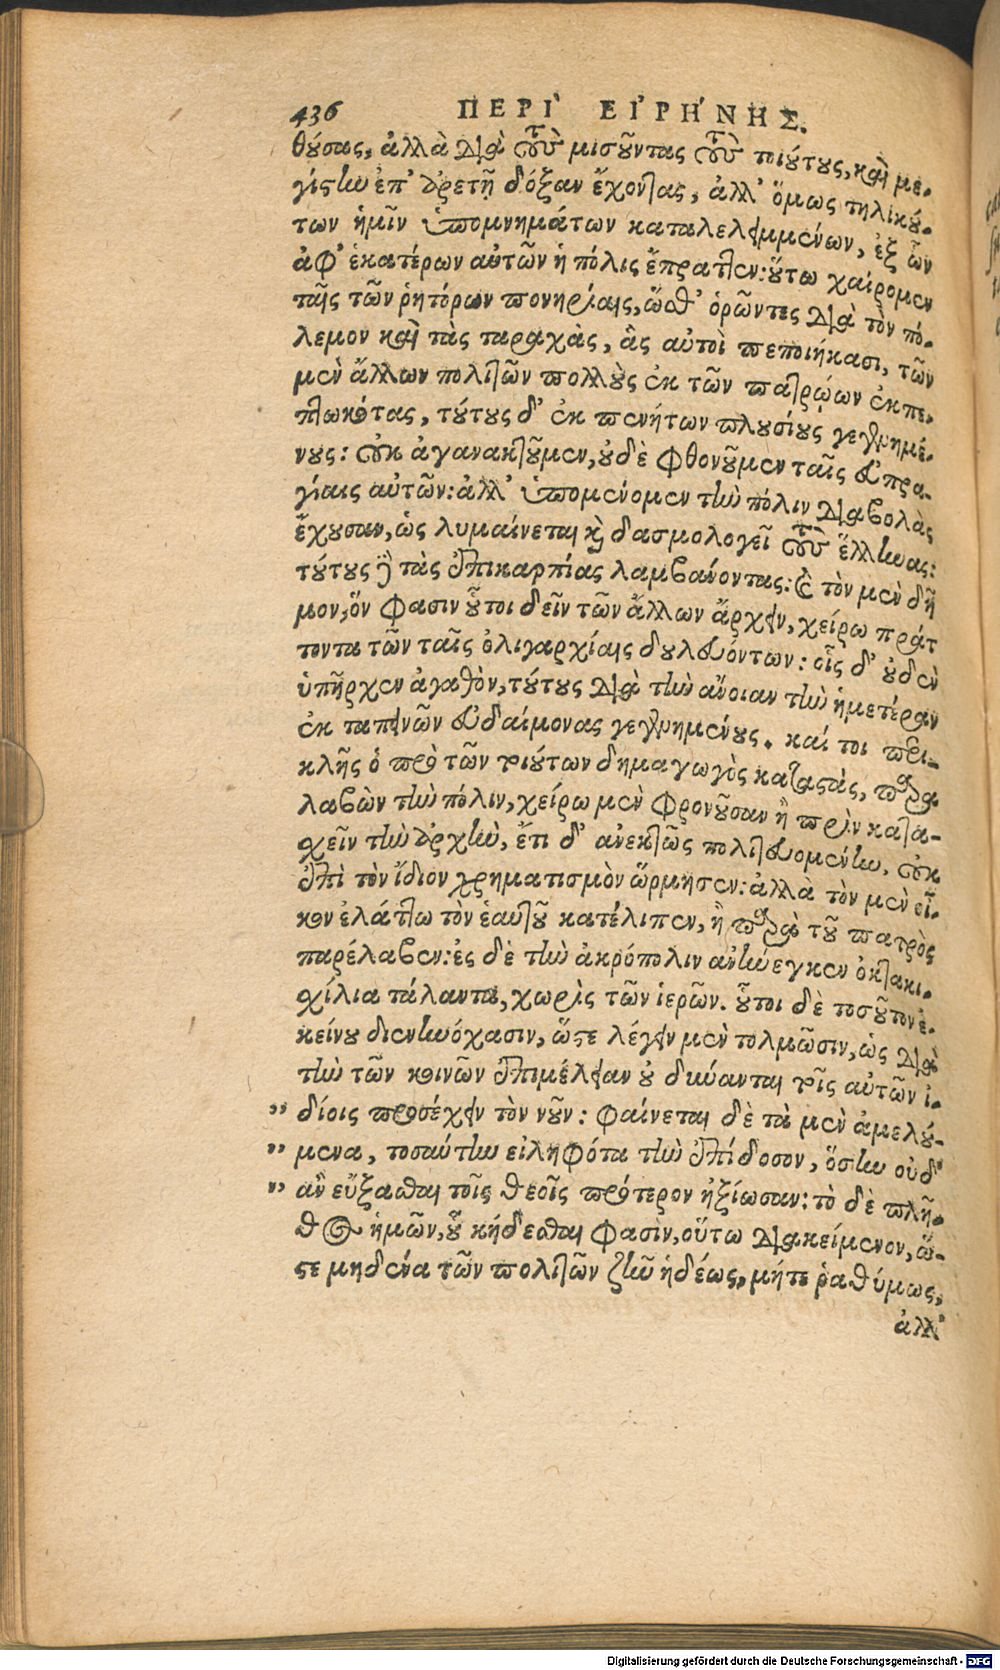 436 ΠΕΡῚ ΕἸΡΉΝΗΣ.
θύσας, ἀλλὰ διὰ τοὺς μισοῦντας τοὺς τοιούτους, καὶ με-
γίστην ἐπ' ἀρετῇ δόξαν ἔχοντας, ἀλλ' ὅμως τηλικού-
των ἡμῖν ὑπομνημάτων καταλελειμμένων, ἐξ ὧν
ἀφ' ἑκατέρων αὐτῶν ἡ πόλις ἔπραττεν: οὕτω χαίρομεν
ταῖς τῶν ῥητόρων πονηρίαις, ὥσθ' ὁρῶντες διὰ τὸν πό-
λεμον καὶ τὰς ταραχὰς, ἃς αὐτοὶ πεποιήκασι, τῶν
μὲν ἄλλων πολιτῶν πολλοὺς ἐκ τῶν πατρῴων ἐκπε-
πτωκότας, τούτους δ' ἐκ πενήτων πλουσίους γεγενημέ-
νους: οὐκ ἀγανακτοῦμεν, οὐδὲ φθονοῦμεν ταῖς εὐπρα-
γίαις αὐτῶν: ἀλλ' ὑπομένομεν τὴν πόλιν διαβολὰς
ἔχουσαν, ὡς λυμαίνεται καὶ δασμολογεῖ τοὺς ἕλληνας:
τούτους δὲ τὰς ἐπικαρπίας λαμβάνοντας: καὶ τὸν μὲν δῆ
μον, ὅν φασιν οὗτοι δεῖν τῶν ἄλλων ἄρχειν, χείρω πράτ
τοντα τῶν ταῖς ὀλιγαρχίαις δουλευόντων: οἷς δ' οὐδὲν
ὑπῆρχεν ἀγαθὸν, τούτους διὰ τὴν ἄνοιαν τὴν ἡμετέραν
ἐκ ταπεινῶν εὐδαίμονας γεγενημένους. καί τοι περι-
κλῆς ὁ πρὸ τῶν τοιούτων δημαγωγὸς καταστὰς, παρα
λαβὼν τὴν πόλιν, χείρω μὲν φρονοῦσαν ἢ πρὶν κατα-
σχεῖν τὴν ἀρχὴν, ἔτι δ' ἀνεκτῶς πολιτευομένην, οὐκ
ἐπὶ τὸν ἴδιον χρηματισμὸν ὥρμησεν: ἀλλὰ τὸν μὲν οἶ-
κον ἐλάττω τὸν ἑαυτοῦ κατέλιπεν, ἢ παρὰ τοῦ πατρὸς
παρέλαβεν: ἐς δὲ τὴν ἀκρόπολιν ἀνήνεγκεν ὀκτακι-
σχίλια τάλαντα, χωρὶς τῶν ἱερῶν. οὗτοι δὲ τοσοῦτον ἐ-
κείνου διενηνόχασιν, ὥστε λέγειν μὲν τολμῶσιν, ὡς διὰ
τὴν τῶν κοινῶν ἐπιμέλειαν οὐ δύνανται τοῖς αὑτῶν ἰ-
„ δίοις προσέχειν τὸν νοῦν: φαίνεται δὲ τὰ μὲν ἀμελού-
„ μενα, τοσαύτην εἰληφότα τὴν ἐπίδοσιν, ὅσην οὐδ'
„ ἂν εὔξασθαι τοῖς θεοῖς πρότερον ἠξίωσαν: τὸ δὲ πλῆ-
θος ἡμῶν, οὗ κήδεσθαί φασιν, οὕτω διακείμενον, ὥ-
στε μηδένα τῶν πολιτῶν ζῆν ἡδέως, μήτε ῥαθύμως,
ἀλλ'
Digitalisierung gefördert durch die Deutsche Forschungsgemeinschaft - DFG